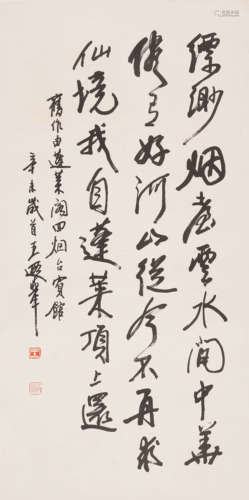 缥缈烟台云水间中华
俊有好河山从今不再求
仙境我自蓬莱顶上还
旧作由蓬莱阁回烟台宾馆
辛未岁首王遐举